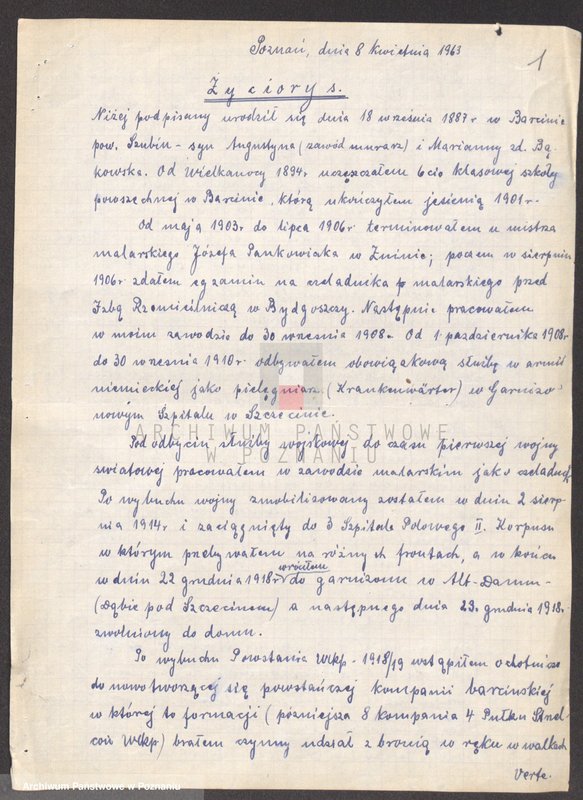 Poznań, dnia 8 kwietnia 1963
1
Życiorys.
Niżej podpisany urodził się dnia 18 września 1887 r w Barcinie
pow. Szubin - syn Augustyna (zawód murarz) i Marianny zd. Bą-
kowska. Od Wielkanocy 1894r uczęszczałem 6cio klasowej szkoły
powszechnej w Barcinie, którą ukończyłem jesienią 1901 r-
Od maja 1903r do lipca 1906r terminowałem u mistrza
malarskiego Józefa Pankowiaka w Żninie; poczem w sierpniu
1906r zdałem egzamin na czeladnika malarskiego przed
Izbą Rzemieślniczą w Bydgoszczy. Następnie pracowałem
w moim zawodzie do 30 wrzesnia 1908. Od 1 pazdziernika 1908r
do 30 wrzesnia 1910r odbywałem obowiązkową służbę w armii
niemieckiej jako pielęgniarz (Krankenwärter) w Garnizo-
nowym Szpitalu w Szczecinie.
ARCHIWUM PAŃSTWOWE
W POZNANIU
Pod odbyciu służby wojskowej do czasu pierwszej wojny
swiatowej pracowałem w zawodzie malarskim jako czeladnik
Po wybuchu wojny zmobilisowany zostałem w dniu 2 sierp-
nia 1914r i zaciągnięty do 3 Szpitala Polowego II. Korpusu
w którym przebywałem na różnych frontach, a w końcu
w dniu 22 grudnia 1918r wróciłem do garnizonu w Alt-Damm-
(Dąbie pod Szczecinem) a następnego dnia 23. grudnia 1918r
zwolniony do domu.
Po wybuchu Powstania Wlkp - 1918/19 wstąpiłem ochotniczo
do nowotworzącej się powstańczej kompanii barcinskiej
w której to formacji (późniejsza 8 kompania 4 Pułku Strzel-
ców Wlkp) brałem czynny udział z bronią w ręku w walkach
Verte.
Archiwum Państwowe w Poznaniu